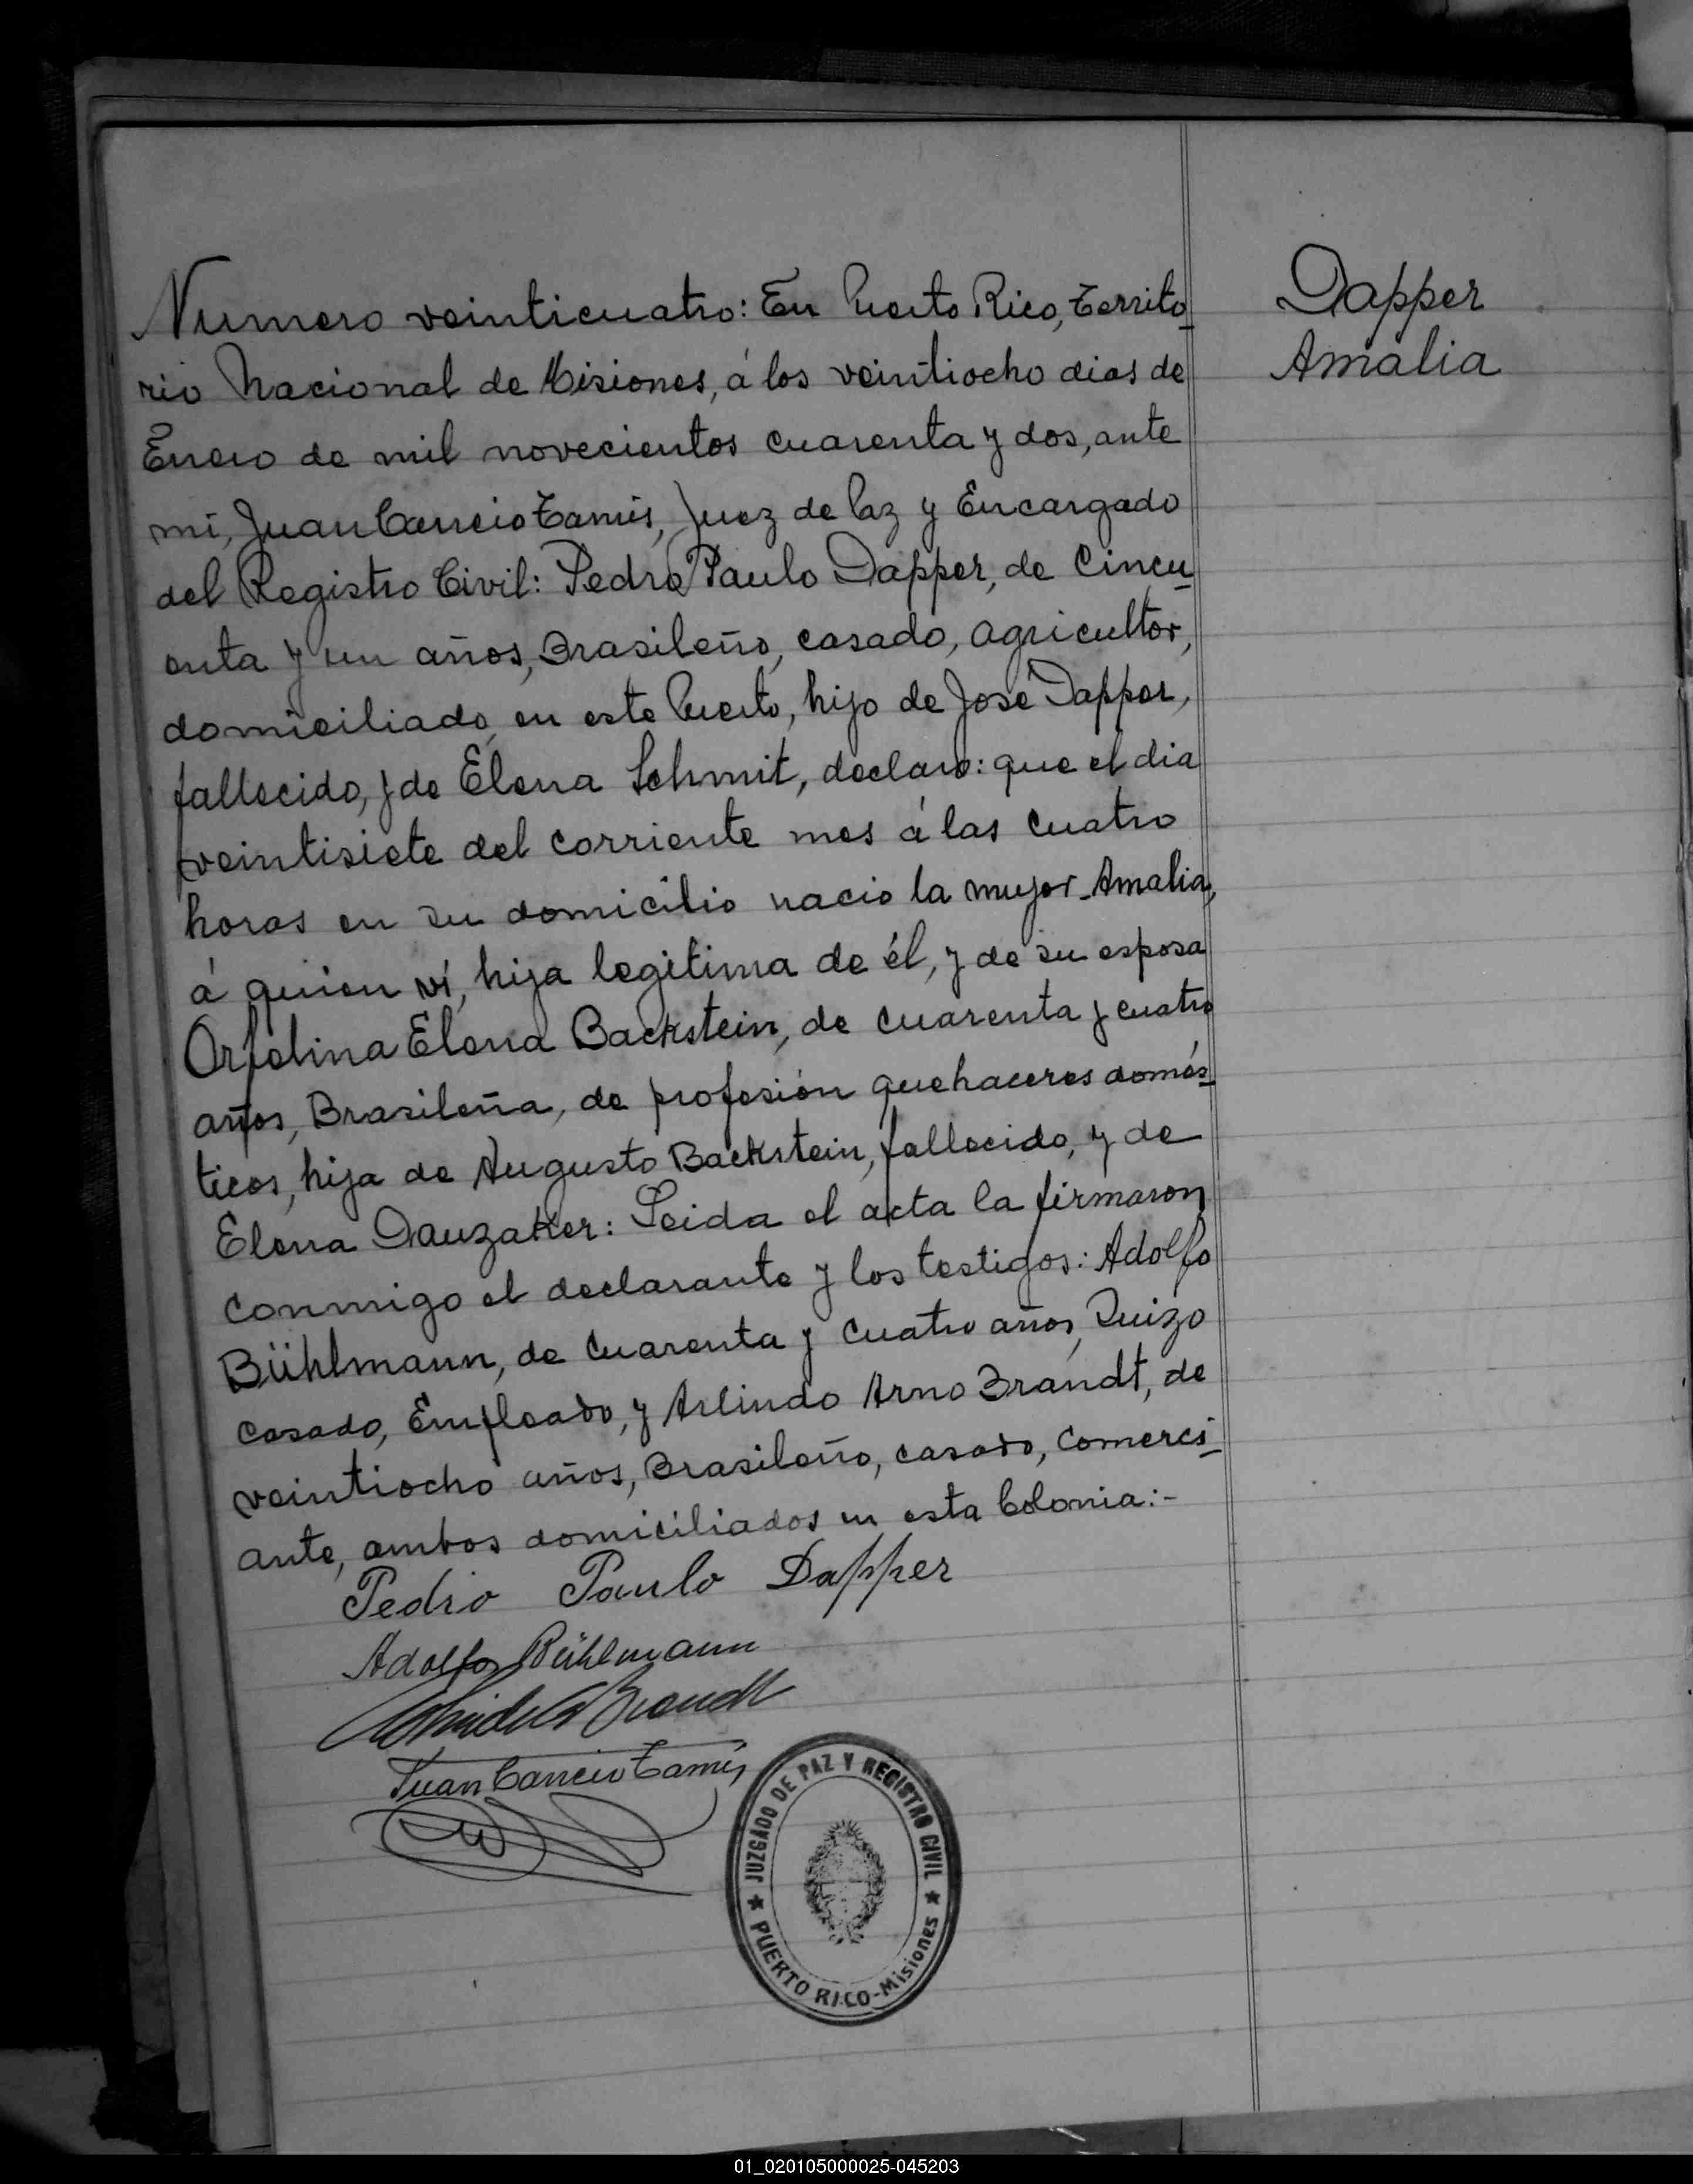 Numero veinticuatro: En Puerto Rico, Territo_
rio Nacional de Misiones, á los veintiocho dias de
Enero de mil novecientos cuarenta y dos, ante
mi, Juan Cancio Tamis, Juez de Paz y Encargado
del Registro Civil: Pedro Paulo Dapper, de Cincu_
enta y un años, Brasileño, casado, agricultor,
domiciliado en este Puerto, hijo de José Dapper,
fallecido, y de Elena Schmit, declaro: que el dia
veintisiete del corriente mes á las cuatro
horas en su domicilio nacio la mujer Amalia,
á quien vi, hija legitima de él, y de su esposa
Orfelina Elena Backstein, de cuarenta y cuatro
años, Brasileña, de profesión quehaceres domés_
ticos, hija de Augusto Backstein, fallecido, y de
Elena Dauzaker: Leida el acta la firmaron
conmigo el declarante y los testigos: Adolfo
Bühlmann, de cuarenta y cuatro años, Suizo
casado, Empleado, y Arlindo Arno Brandt, de
veintiocho años, Brasileño, casado, comerci_
ante, ambos domiciliados en esta Colonia:-
Pedro Paulo Dapper
Adolfo Bühlmann
Brandt
Juan Cancio Tamis
JUZGADO DE PAZ Y REGISTRO CIVIL
PUERTO RICO-Misiones
Dapper
Amalia
01_020105000025-045203